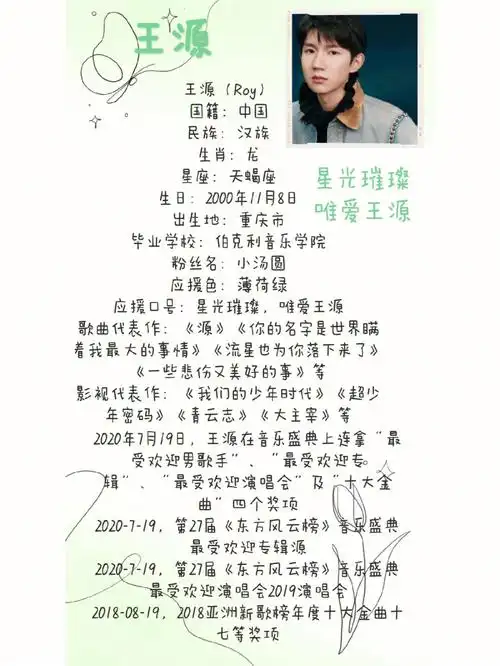 王源
王源（Roy）
国籍：中国
民族：汉族
生肖：龙
星座：天蝎座
生日：2000年11月8日
出生地：重庆市
毕业学校：伯克利音乐学院
粉丝名：小汤圆
应援色：薄荷绿
应援口号：星光璀璨，唯爱王源
歌曲代表作：《源》《你的名字是世界瞒
着我最大的事情》《流星也为你落下来了》
《一些悲伤又美好的事》等
影视代表作：《我们的少年时代》《超少
年密码》《青云志》《大主宰》等
2020年7月19日，王源在音乐盛典上连拿“最
受欢迎男歌手”、“最受欢迎专
辑”、“最受欢迎演唱会”及“十大金
曲”四个奖项
2020-7-19，第27届《东方风云榜》音乐盛典
最受欢迎专辑源
2020-7-19，第27届《东方风云榜》音乐盛典
最受欢迎演唱会2019演唱会
2018-08-19，2018亚洲新歌榜年度十大金曲十
七等奖项
星光璀璨
唯爱王源